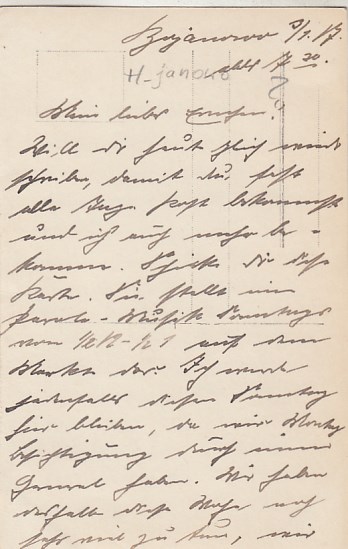 Bojanowo 3/1. 17.
abds 7 30.
H-janowo
Mein liebes
Will dir heut gleich wieder
schreiben, damit du fast
alle Tage Post bekommst
und ich auch mehr be-
komme. Schicke dir diese
Karte. Sie stellt eine
Parade-Musik Sonntags
von 1/2 12 - 1/2 1 auf dem
Markt dar. Ich werde
jedenfalls diesen Sonntag
hier bleiben, da wir Montag
Besichtigung durch einen
General haben. Wir haben
deshalb diese Woche noch
sehr viel zu tun, wir